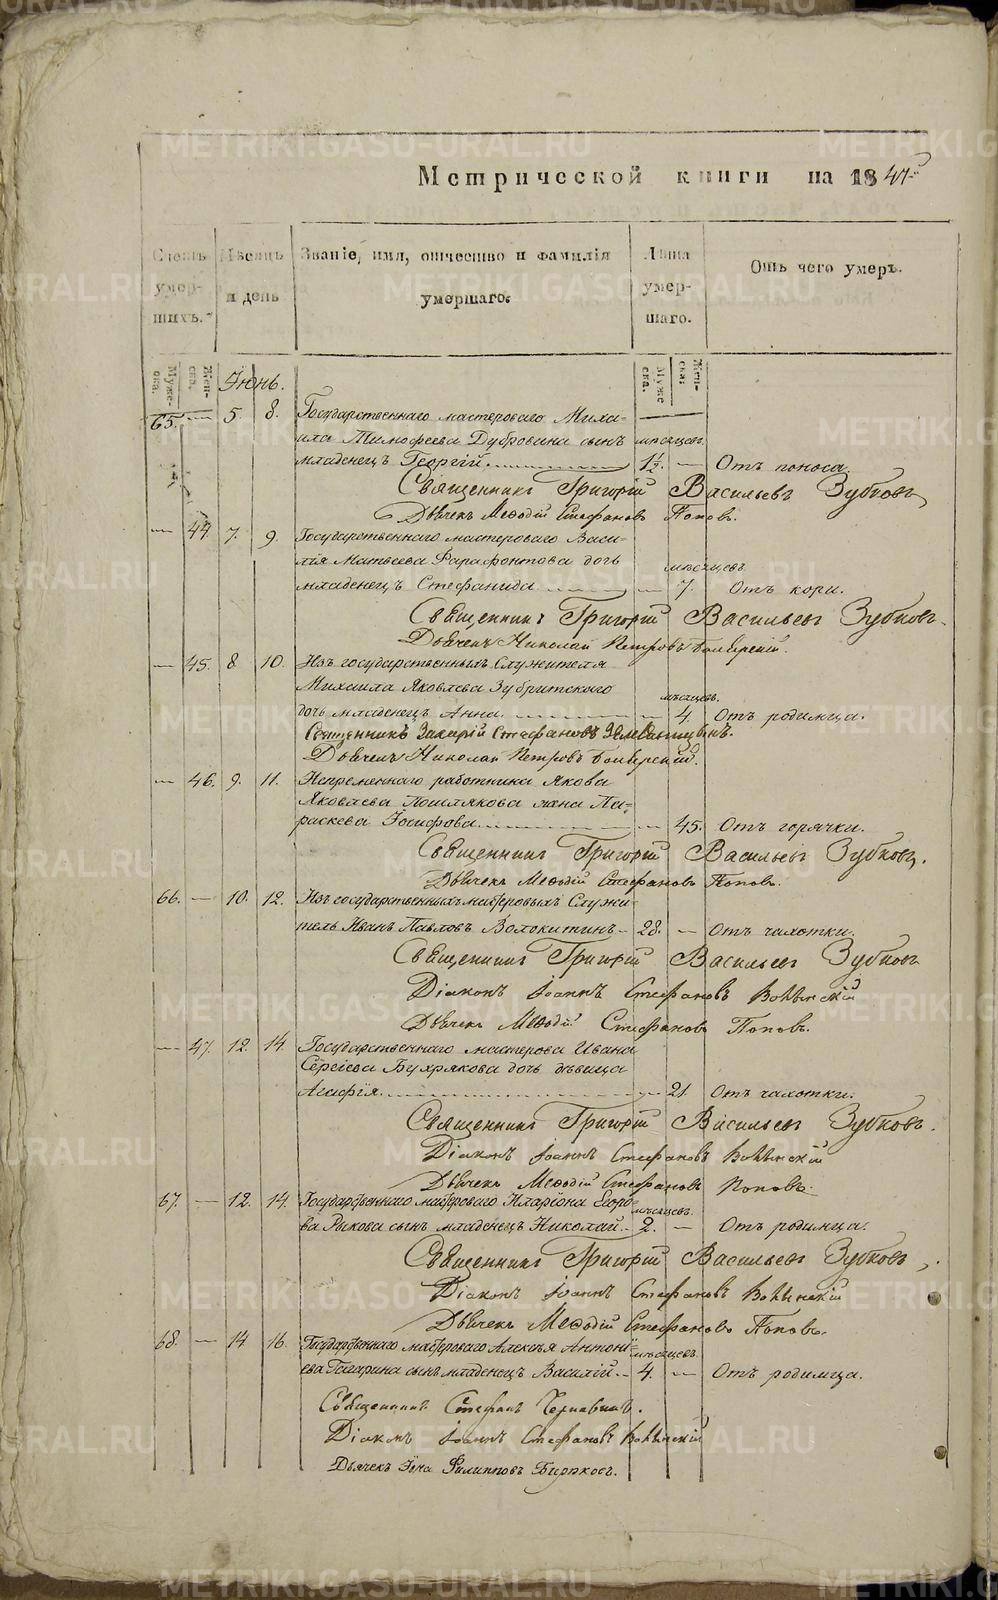 METRIKI.GASO-URAL.RU
Метрической книги на 1847
Счетъ умер-шихъ. Мѣсяцъ и день Званіе, имя, отчество и фамилія умершаго. Лѣта умер-шаго. Отъ чего умеръ.
Муже-ска. Жен-ска. Іюнь. Муже ска. Жен-ска.
65. — 5 8. Государственнаго мастероваго Миха-
ила Тимофеева Дубровина сынъ мѣсяцевъ
младенецъ Георгій. 1½. — Отъ поноса.
Священникъ Григорій Васильевъ Зубковъ
Дьячекъ Меѳодій Стефановъ Поповъ.
— 44. 7. 9. Государственнаго мастероваго Васи-
лія Матвеева Фарафонтова дочь мѣсяцевъ
младенецъ Стефанида. — 7. Отъ кори.
Священникъ Григорій Васильевъ Зубковъ.
Дьячекъ Николай Петровъ
— 45. 8. 10. Изъ государственныхъ служителя
Михаила Яковлева Зубритскаго мѣсяцевъ.
дочь младенецъ Анна. — 4. Отъ родимца.
Священникъ Захарій Стефановъ
Дьячекъ Николай Петровъ
— 46. 9. 11. Непременнаго работника Якова
Яковлева Пошлякова жена Па-
раскева Іосифова. — 45. Отъ горячки.
Священникъ Григорій Васильевъ Зубковъ.
Дьячекъ Меѳодій Стефановъ Поповъ.
66. — 10. 12. Изъ государственныхъ мастеровыхъ служи-
тель Иванъ Павловъ Волокитинъ — 28. — Отъ чахотки.
Священникъ Григорій Васильевъ Зубковъ
Діаконъ Іоаннъ Стефановъ Волынскій
Дьячекъ Меѳодій Стефановъ Поповъ.
— 47. 12. 14. Государственнаго мастерова Ивана
Сергіева Бухрякова дочь дѣвица
Агафія. — 21. Отъ чахотки.
Священникъ Григорій Васильевъ Зубковъ.
Діаконъ Іоаннъ Стефановъ Волынскій
Дьячекъ Меѳодій Стефановъ Поповъ.
67. — 12. 14. Государственнаго мастероваго Иларіона Егоро- мѣсяцевъ.
ва Рыкова сынъ младенецъ Николай. 2. — Отъ родимца.
Священникъ Григорій Васильевъ Зубковъ,
Діаконъ Іоаннъ Стефановъ Волынскій
Дьячекъ Меѳодій Стефановъ Поповъ.
68. — 14 16. Государственнаго мастероваго Алексѣя Антоні- мѣсяцевъ.
ева Гагарина сынъ младенецъ Василій. 4. — Отъ родимца.
Священникъ Стефанъ Чернавинъ.
Діаконъ Іоаннъ Стефановъ Волынскій
Дьячекъ Іона Филипповъ Бирюковъ.